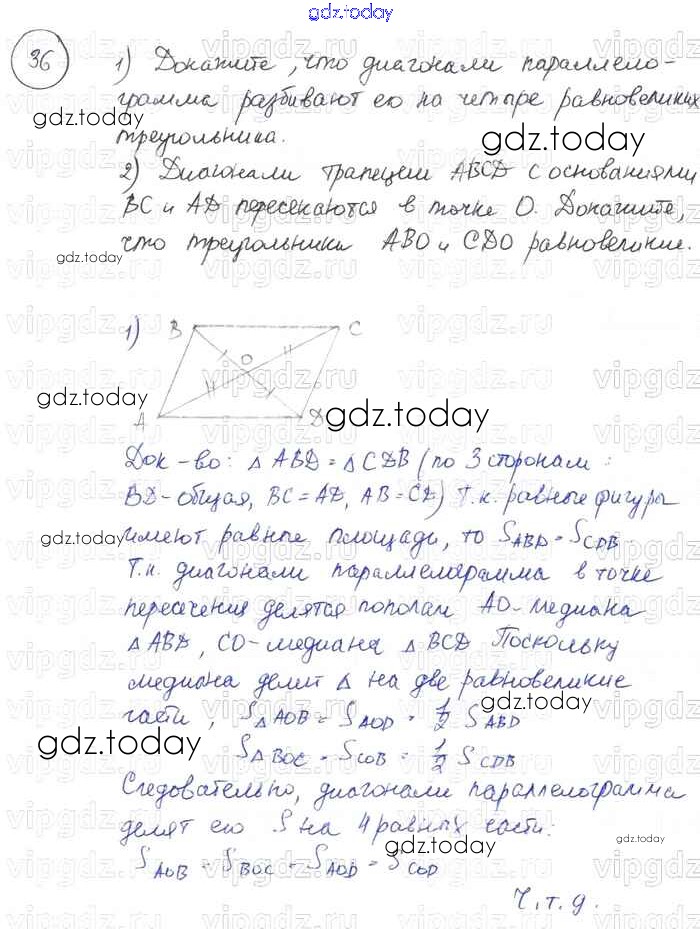 gdz.today
36
1) Докажите, что диагонали параллело-
грамма разбивают его на четыре равновеликих
треугольника.
2) Диагонали трапеции ABCD с основаниями
BC и AD пересекаются в точке O. Докажите,
что треугольники ABO и CDO равновеликие.
1)
B C
O
A D
Док-во: △ ABD = △ CDB (по 3 сторонам:
BD-общая, BC = AD, AB = CD) Т.к. равные фигуры
имеют равные площади, то S ABD = S CDB.
Т.к. диагонали параллелограмма в точке
пересечения делятся пополам AO-медиана
△ ABD, CO-медиана △ BCD Поскольку
медиана делит △ на две равновеликие
части, S △ AOB = S AOD = 1/2 S ABD
S △ BOC = S COB = 1/2 S CDB
Следовательно, диагонали параллелограмма
делят его S на 4 равных части:
S AOB = S BOC = S AOD = S COD
Ч.т.д.
gdz.today
gdz.today
gdz.today
gdz.today
gdz.today
gdz.today
gdz.today
gdz.today
gdz.today